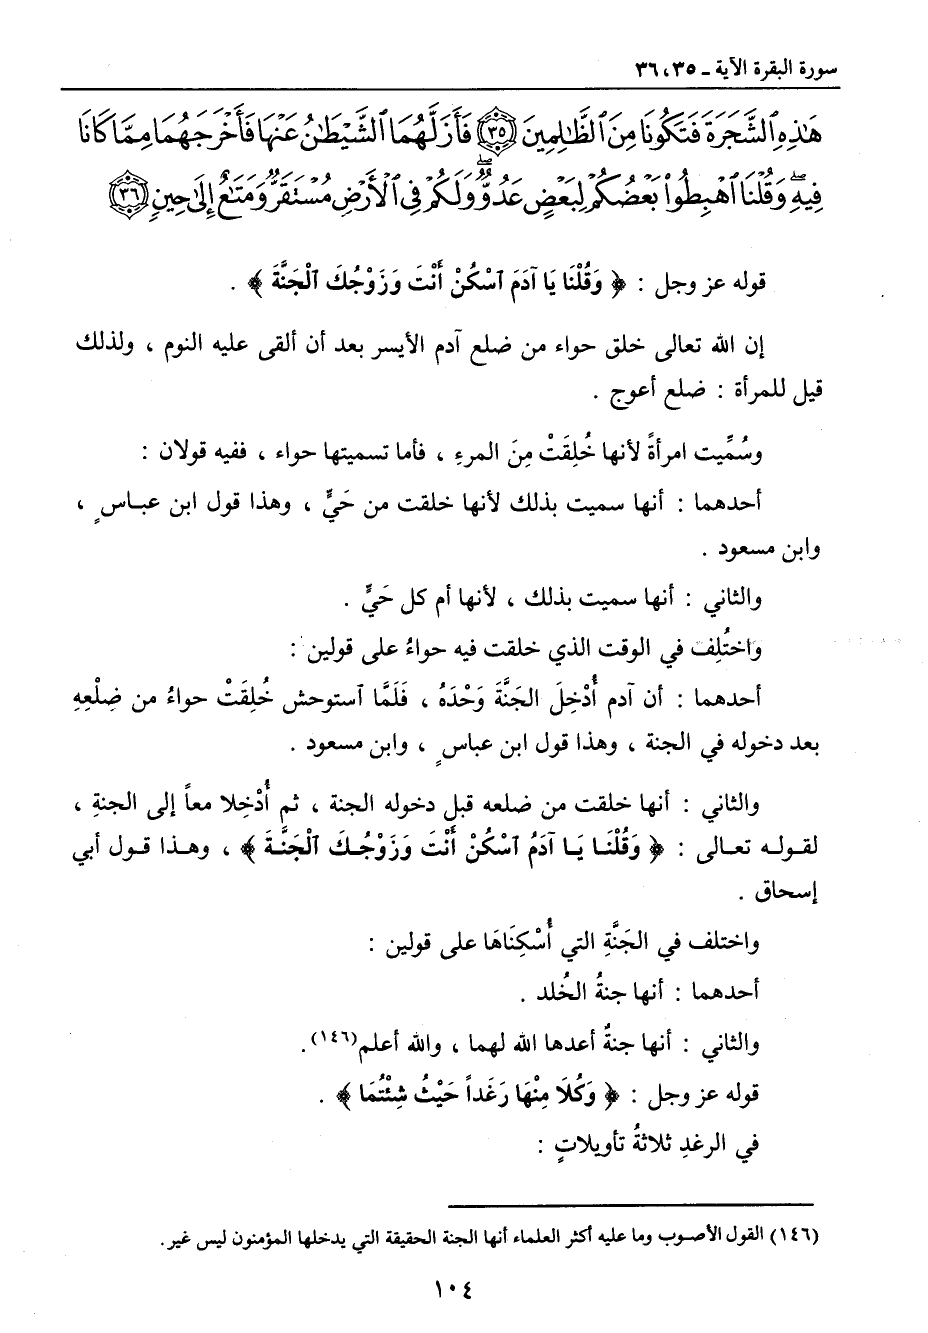 سورة البقرة الآية ـ ٣٥، ٣٦
هَٰذِهِ ٱلشَّجَرَةَ فَتَكُونَا مِنَ ٱلظَّٰلِمِينَ ﴿٣٥﴾ فَأَزَلَّهُمَا ٱلشَّيْطَٰنُ عَنْهَا فَأَخْرَجَهُمَا مِمَّا كَانَا
فِيهِ ۖ وَقُلْنَا ٱهْبِطُوا۟ بَعْضُكُمْ لِبَعْضٍ عَدُوٌّ ۖ وَلَكُمْ فِى ٱلْأَرْضِ مُسْتَقَرٌّ وَمَتَٰعٌ إِلَىٰ حِينٍ ﴿٣٦﴾
قوله عز وجل : ﴿ وَقُلْنَا يَا آدَمَ ٱسْكُنْ أَنْتَ وَزَوْجُكَ ٱلْجَنَّةَ ﴾ .
إن الله تعالى خلق حواء من ضلع آدم الأيسر بعد أن ألقى عليه النوم ، ولذلك
قيل للمرأة : ضلع أعوج .
وسُمِّيت امرأةً لأنها خُلِقَتْ مِنَ المرءِ ، فأما تسميتها حواء ، ففيه قولان :
أحدهما : أنها سميت بذلك لأنها خلقت من حَيٍّ ، وهذا قول ابن عباسٍ ،
وابن مسعود .
والثاني : أنها سميت بذلك ، لأنها أم كل حَيٍّ .
واختُلِف في الوقت الذي خلقت فيه حواءُ على قولين :
أحدهما : أن آدم أُدْخِلَ الجَنَّةَ وَحْدَهُ ، فَلَمَّا ٱستوحش خُلِقَتْ حواءُ من ضِلْعِهِ
بعد دخوله في الجنة ، وهذا قول ابن عباسٍ ، وابن مسعود .
والثاني : أنها خلقت من ضلعه قبل دخوله الجنة ، ثم أُدْخِلا معاً إلى الجنةِ ،
لقوله تعالى : ﴿ وَقُلْنَا يَا آدَمُ ٱسْكُنْ أَنْتَ وَزَوْجُكَ ٱلْجَنَّةَ ﴾ ، وهذا قول أبي
إسحاق .
واختلف في الجَنَّةِ التي أُسْكِنَاهَا على قولين :
أحدهما : أنها جنةُ الخُلد .
والثاني : أنها جنةٌ أعدها الله لهما ، والله أعلم(١٤٦).
قوله عز وجل : ﴿ وَكُلَا مِنْهَا رَغَداً حَيْثُ شِئْتُمَا ﴾ .
في الرغدِ ثلاثةُ تأويلاتٍ :
(١٤٦) القول الأصوب وما عليه أكثر العلماء أنها الجنة الحقيقة التي يدخلها المؤمنون ليس غير.
١٠٤